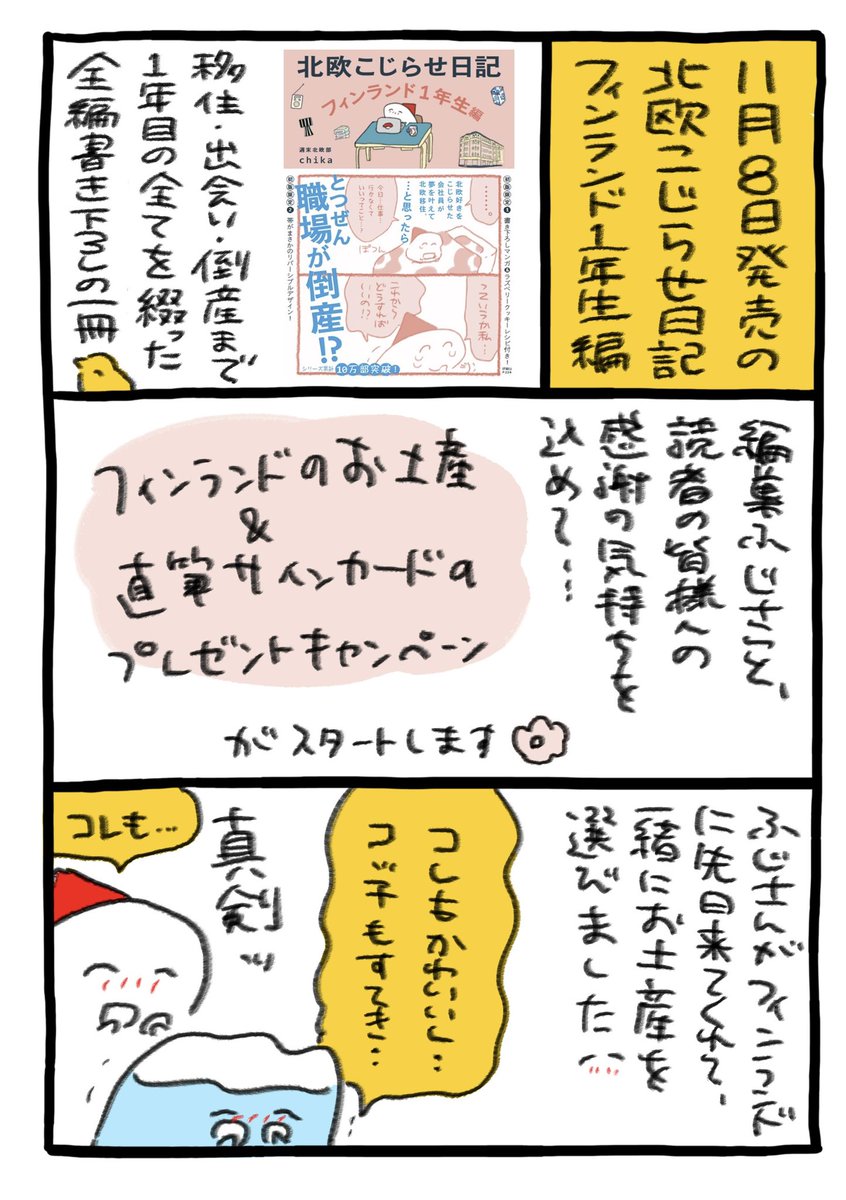 11月8日発売の
北欧こじらせ日記
フィンランド1年生編
北欧こじらせ日記
フィンランド1年生編
週末北欧部
chika
初版限定1 書き下ろしマンガ&ラズベリークッキーレシピ付き!
……。
北欧好きを
こじらせた
会社員が
夢を叶えて
北欧移住、
…と思ったら
今日…仕事…
行かなくて
いいってこと…?
ぽつん
とつぜん
職場が倒産!?
っていうか私…
これから
どうすれば
いいの!?
初版限定2 帯がまさかのリバーシブルデザイン!
シリーズ累計10万部突破!
移住・出会い・倒産まで
1年目の全てを綴った
全編書き下ろしの一冊
編集ふじさんと、
読者の皆様への
感謝の気持ちを
込めて…
フィンランドのお土産
&
直筆サインカードの
プレゼントキャンペーン
がスタートします
ふじさんがフィンランド
に先日来てくれて、
一緒にお土産を
選びました
コレもかわいいし…
コッチもすてき…
真剣
コレも…